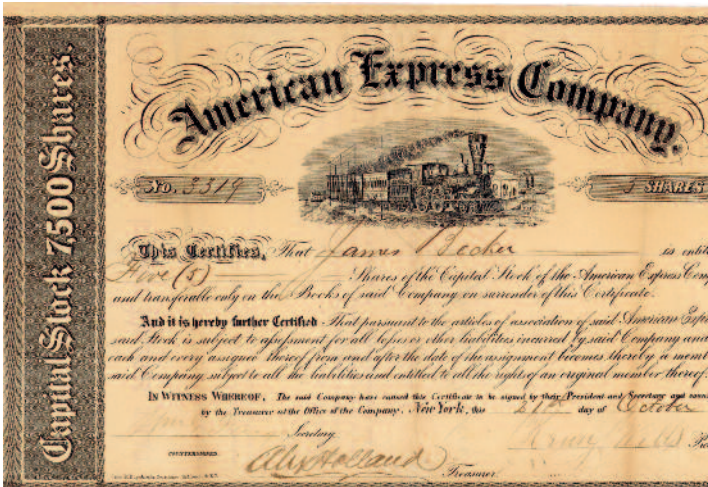 American Express Company.
Capital Stock 7,500 Shares.
No. 3319
5 SHARES
This Certifies, That James Becker is entit
Five (5) Shares of the Capital Stock of the American Express Com
and transferable only on the Books of said Company on surrender of this Certificate.
And it is hereby further Certified That pursuant to the articles of association of said American Expr
said Stock is subject to assessment for all losses or other liabilities incurred by said Company and
each and every assignee thereof from and after the date of the assignment becomes thereby a memb
said Company subject to all the liabilities and entitled to all the rights of an original member thereof.
IN WITNESS WHEREOF, The said Company have caused this Certificate to be signed by their President and Secretary and
by the Treasurer at the Office of the Company, New York, this day of October
Secretary
COUNTERSIGNED
Alex Holland
Treasurer